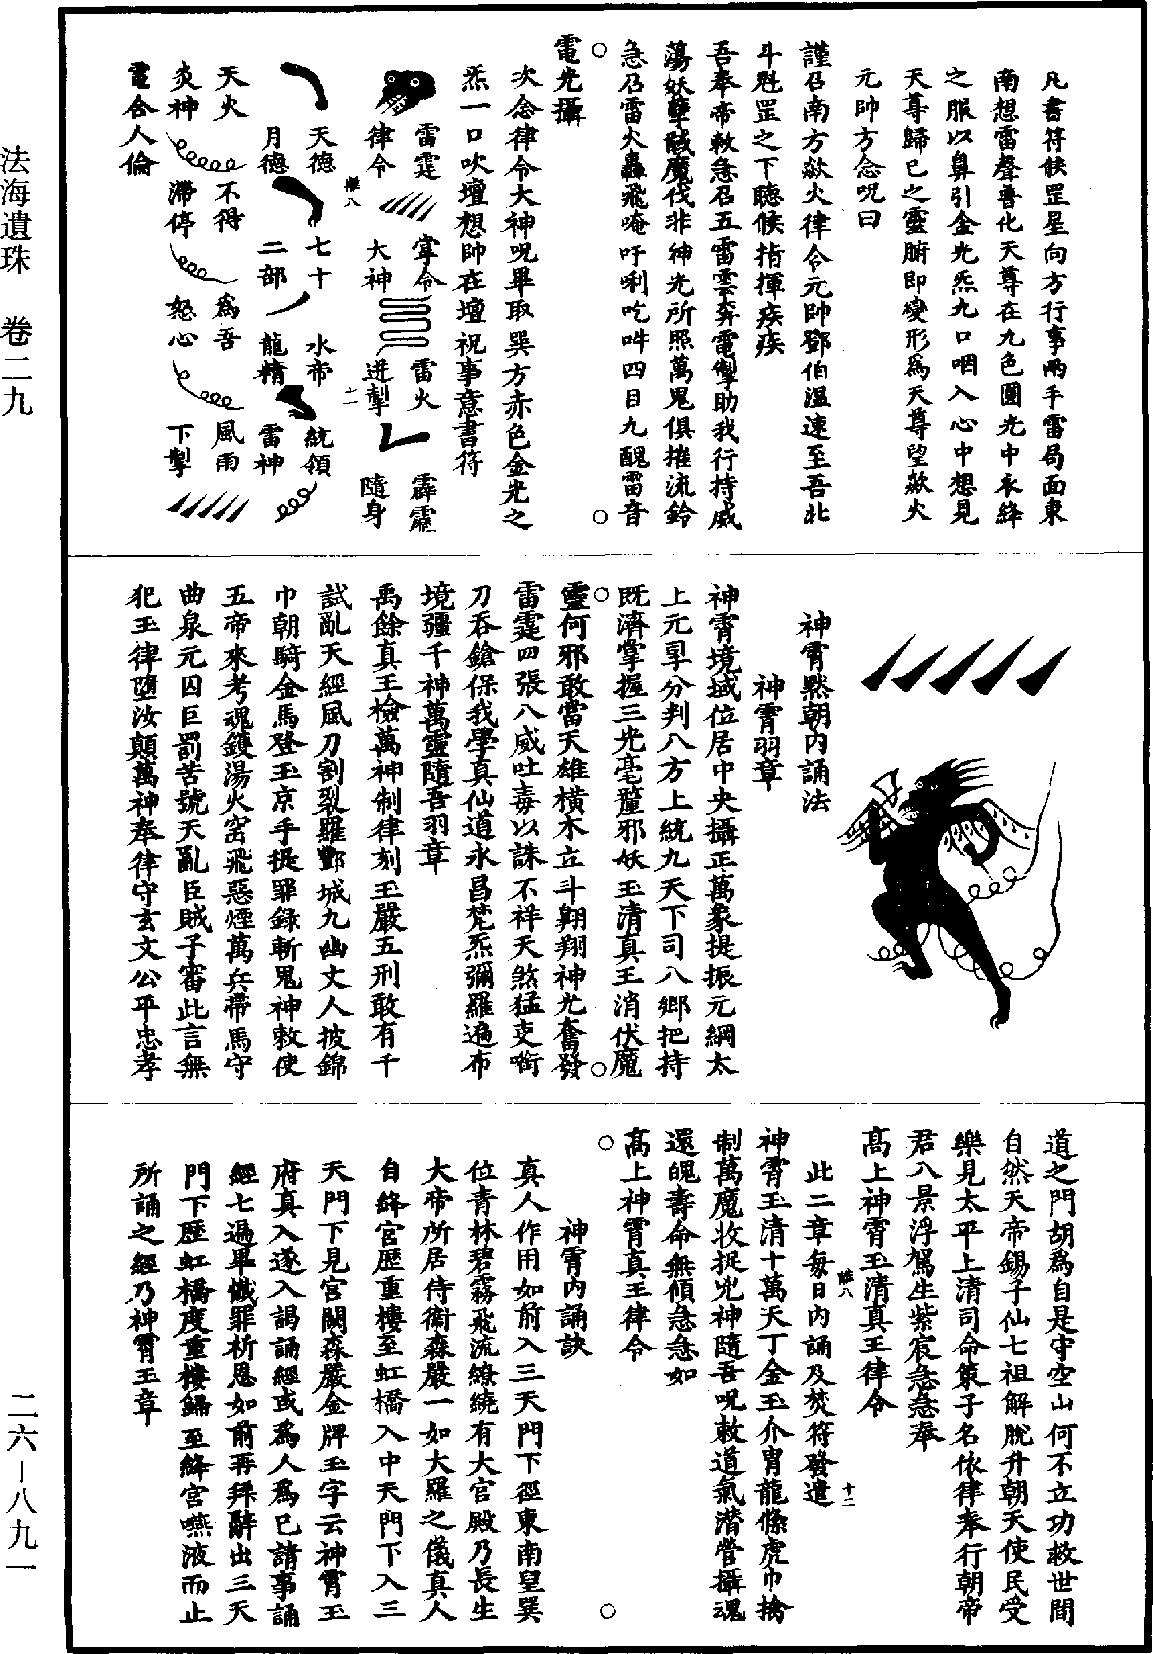 凡書符躡罡星向方行事兩手雷局面東
南想雷聲普化天尊在九色圓光中衣絳
之服以鼻引金光炁九口咽入心中想見
天尊歸己之靈腑即變形為天尊望歘火
元帥方念呪曰
謹召南方歘火律令元帥鄧伯溫速至吾北
斗魁罡之下聽候指揮疾疾
吾奉帝敕急召五雷雲奔電掣助我行持威
蕩妖孽馘魔伐非神光所照萬鬼俱摧流鈴
急召雷火轟飛唵吽唎吃吽四目九醜雷音
○　○
電光攝
次念律令大神呪畢取巽方赤色金光之
炁一口吹壇想帥在壇祝事意書符
雷霆　律令
宰令　大神
雷火　迸掣
霹靂　隨身
雕八
十一
天德　月德
七十　二部
水帝　龍精
統領　雷神
天火　炎神
不得　滯停
為吾　怒心
風雨　下掣
電合人倫
神霄默朝內誦法
神霄羽章
神霄境域位居中央攝正萬象提振元綱太
上元罡分判八方上統九天下司八鄉把持
既濟掌握三光毫釐邪妖玉清真王消伏魔
○　○
靈何邪敢當天雄橫木立斗翱翔神光奮發
雷霆四張八威吐毒以誅不祥天煞猛吏啣
刀吞鎗保我學真仙道永昌梵炁彌羅遍布
境疆千神萬靈隨吾羽章
禹餘真王檢萬神制律刻玉嚴五刑敢有千
試亂天經風刀割裂羅酆城九幽丈人披錦
巾朝騎金馬登玉京手提罪錄斬鬼神敕使
五帝來考魂鑊湯火窑飛惡煙萬兵帶馬守
曲泉元囚巨罰苦號天亂臣賊子審此言無
犯玉律墮汝顛萬神奉律守玄文公平忠孝
道之門胡為自是守空山何不立功救世間
自然天帝錫子仙七祖解脫升朝天使民受
樂見太平上清司命策子名依律奉行朝帝
君八景浮駕生紫宸急急奉
高上神霄玉清真王律令
此二章每日內誦及焚符發遣
雕八
十二
神霄玉清十萬天丁金玉介冑龍絛虎巾擒
制萬魔收捉兇神隨吾呪敕道氣潛營攝魂
還魄壽命無傾急急如
高上神霄真王律令
○　○
神霄內誦訣
真人作用如前入三天門下徑東南望巽
位青林碧霧飛流繚繞有大宮殿乃長生
大帝所居侍衛森嚴一如大羅之儀真人
自絳宮歷重樓至虹橋入中天門下入三
天門下見宮闕森嚴金牌玉字云神霄玉
府真人遂入謁誦經或為人為己請事誦
經七遍畢懺罪祈恩如前再拜辭出三天
門下歷虹橋度重樓歸至絳宮嚥液而止
所誦之經乃神霄玉章
法海遺珠　卷二九
二六－八九一